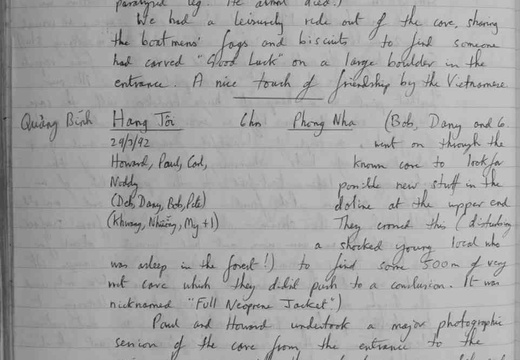 paralysed leg. He almost died!)
We had a leisurely ride out of the cave, sharing
the boatmens' fags and biscuits to find someone
had carved "Good Luck" on a large boulder in the
entrance. A nice touch of friendship by the Vietnamese
Quảng Bình Hang Tối 6hr Phong Nha (Bob, Dany and 6
29/3/92 went on through the
Howard, Paul, Carl, known cave to look for
Noddy possible new stuff in the
(Deb, Dany, Bob, Pete) doline at the upper end
(Khương, Nhường, My +1) They crossed this (disturbing
a shocked young local who
was asleep in the forest!) to find some 500m of very
wet cave which they didn't push to a conclusion. It was
nicknamed "Full Neoprene Jacket")
Paul and Howard undertook a major photographic
session of the cave from the entrance to the